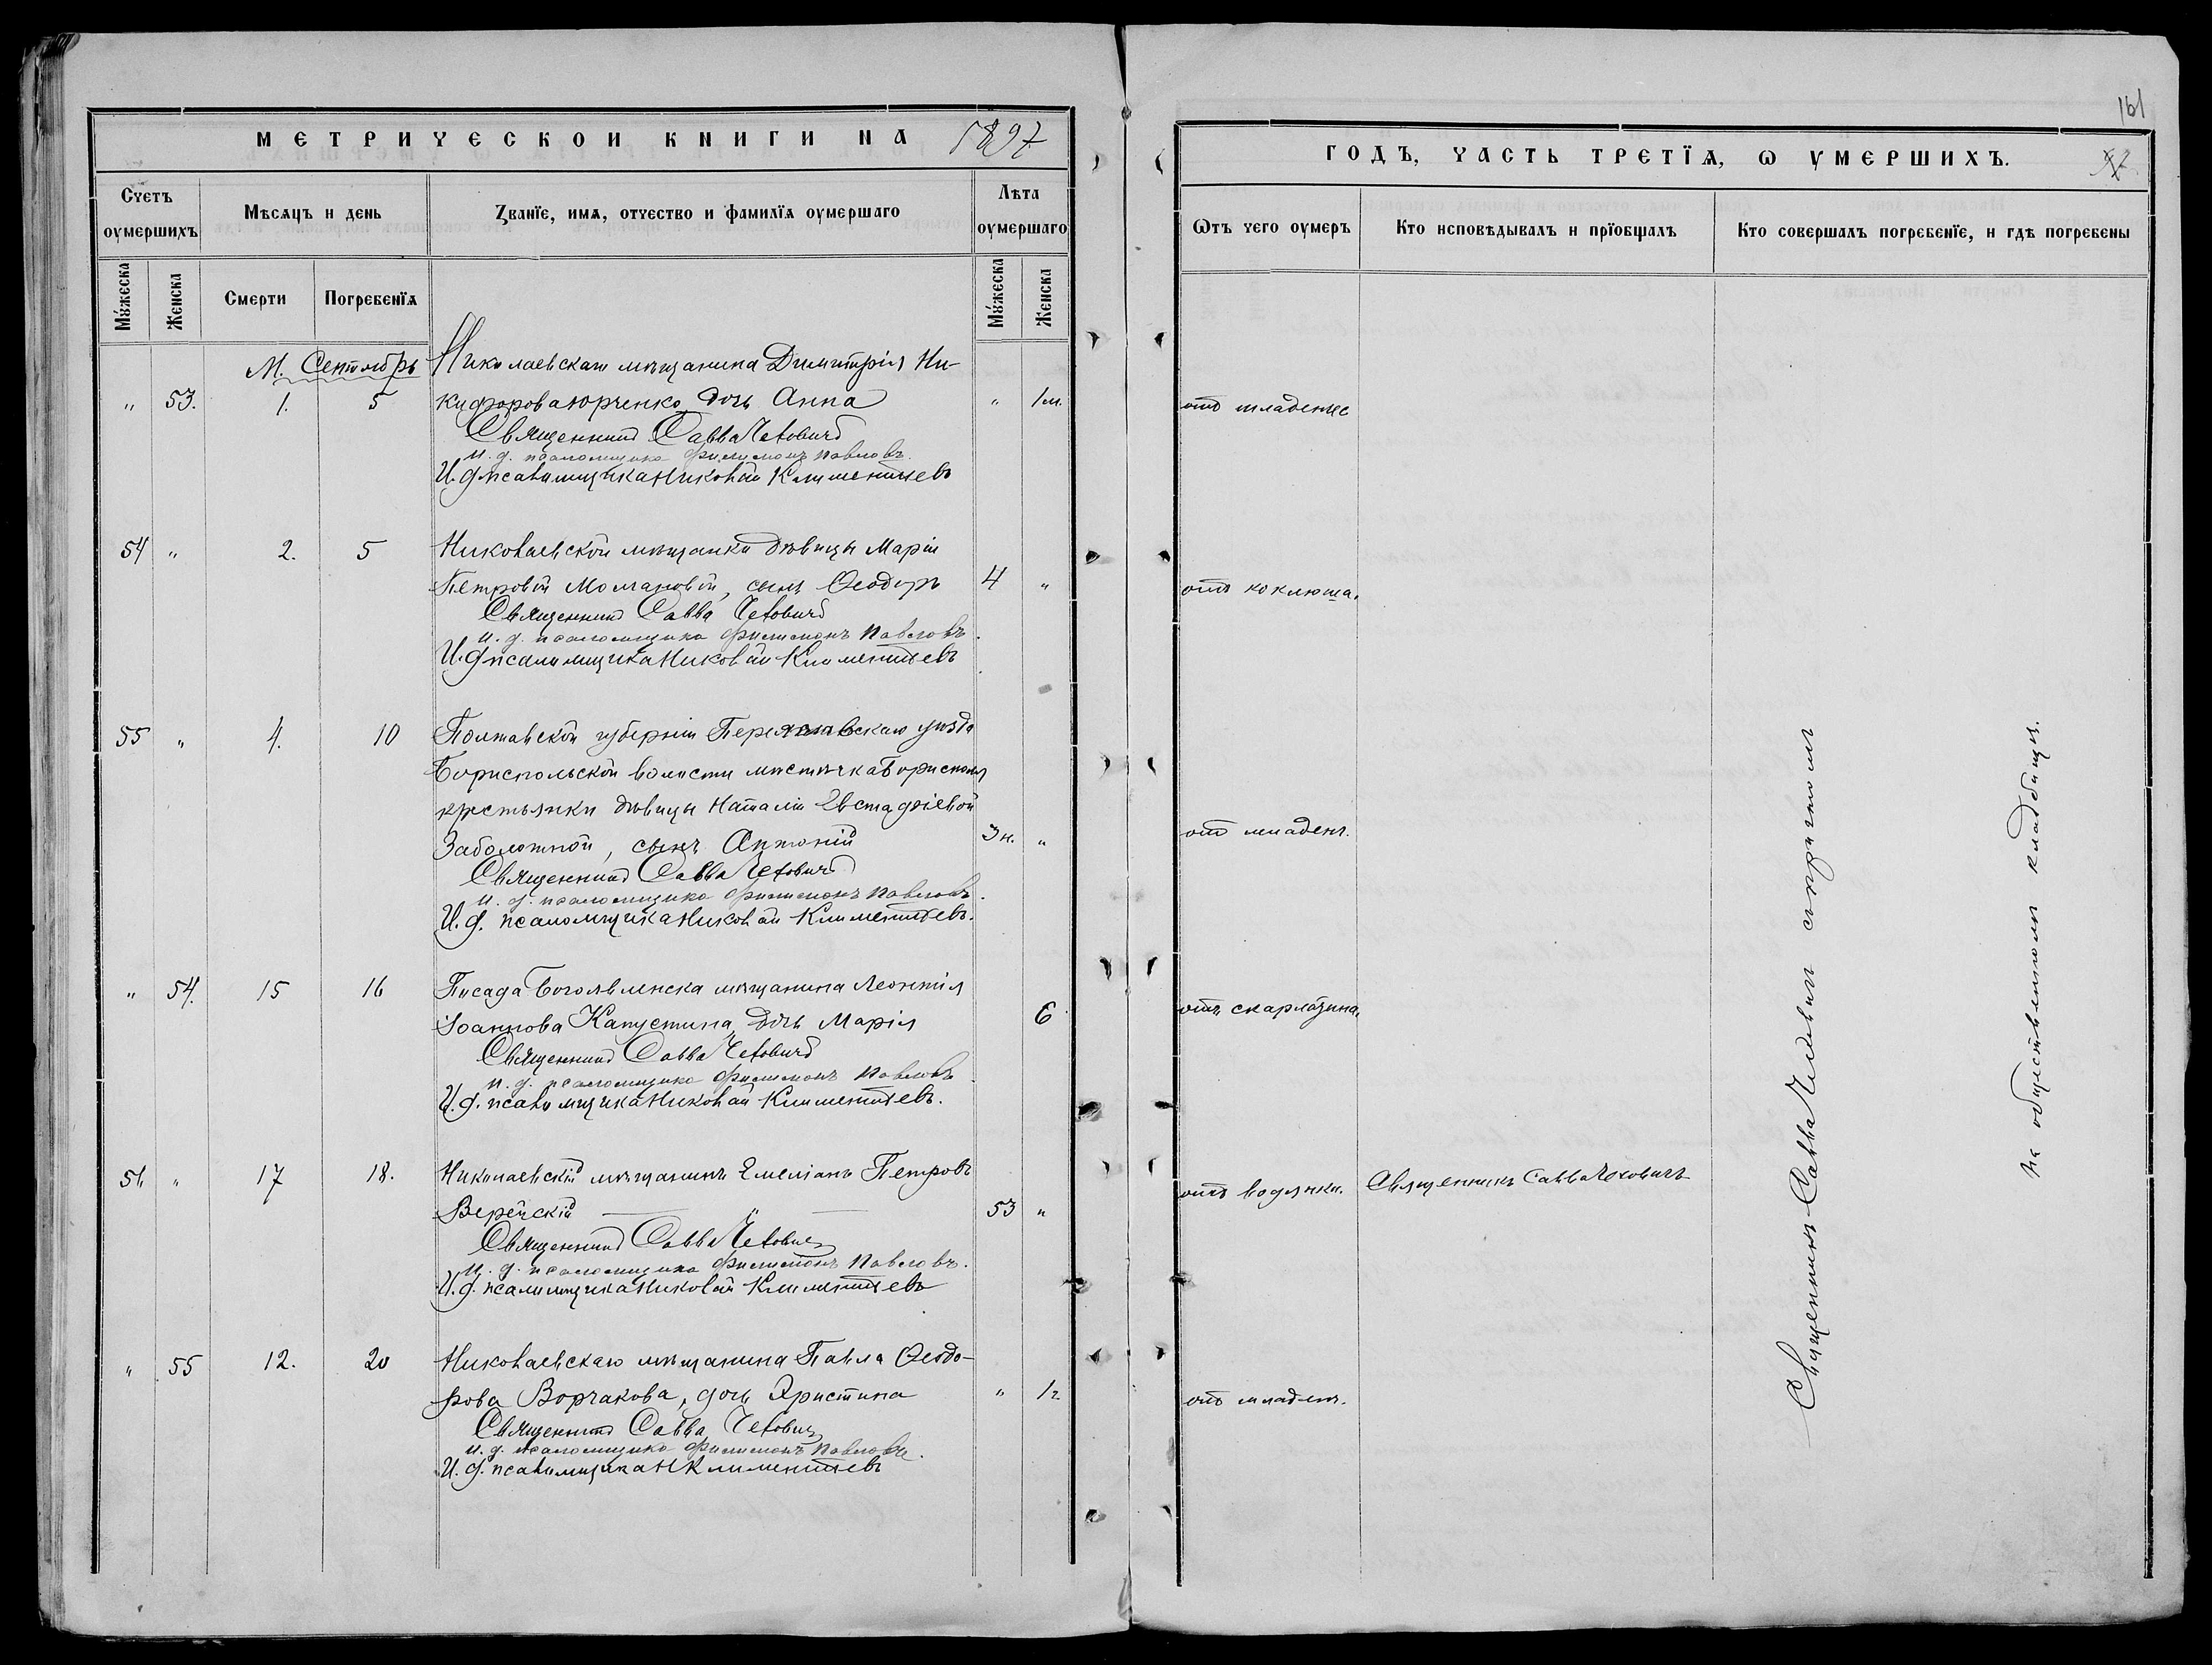 МЕТРИЧЕСКОЙ КНИГИ НА 1897
Счетъ оумершихъ
Мѣсяцъ и день
Званїе, имя, отчество и фамилїя оумершаго
Лѣта оумершаго
Мужеска
Женска
Смерти
Погребенїя
Мужеска
Женска
М. Сентябрь
Николаевскаго мѣщанина Димитрія Ни-
" 53. 1. 5 кифорова Юрченко дочь Анна " 1 м.
Священникъ Савва
И. д. псаломщика Филимонъ Павловъ.
И. д. псаломщика Николай Климентьевъ
54 " 2. 5 Николаевской мѣщанки дѣвицы Маріи
Петровой Молчановой, сынъ Ѳеодоръ 4 "
Священникъ Савва
и. д. псаломщика Филимонъ Павловъ.
И. д. псаломщика Николай Климентьевъ
55 " 4. 10 Полтавской губерніи Переяславскаго уѣзда
Бориспольской волости мѣстечка Борисполя
крестьянки дѣвицы Наталіи Евстафіевой
Заболотной, сынъ Антоній 3 н. "
Священникъ Савва
и. д. псаломщика Филимонъ Павловъ.
И. д. псаломщика Николай Климентьевъ.
" 54. 15 16 Посада Богоявленска мѣщанина Леонтія
Іоаннова Капустина дочь Марія 6
Священникъ Савва
и. д. псаломщика Филимонъ Павловъ
И. д. псаломщика Николай Климентьевъ.
56 " 17 18. Николаевскій мѣщанинъ Емеліанъ Петровъ
Верейскій 53 "
Священникъ Савва
и. д. псаломщика Филимонъ Павловъ.
И. д. псаломщика Николай Климентьевъ
" 55 12. 20 Николаевскаго мѣщанина Павла Ѳеодо-
рова Ворчакова, дочь Христина " 1 г.
Священникъ Савва
и. д. псаломщика Филимонъ Павловъ.
И. д. псаломщика Н Климентьевъ
161
ГОДЪ, ЧАСТЬ ТРЕТЇЯ, Ѡ УМЕРШИХЪ.
Ѿтъ чего оумеръ
Кто исповѣдывалъ и прїобщалъ
Кто совершалъ погребенїе, и гдѣ погребены
отъ младенчес
отъ коклюша.
отъ младенч.
отъ скарлатина.
отъ водянки. Священникъ Савва
отъ младенч.
Священникъ Савва съ причтомъ
на общественномъ кладбищѣ.